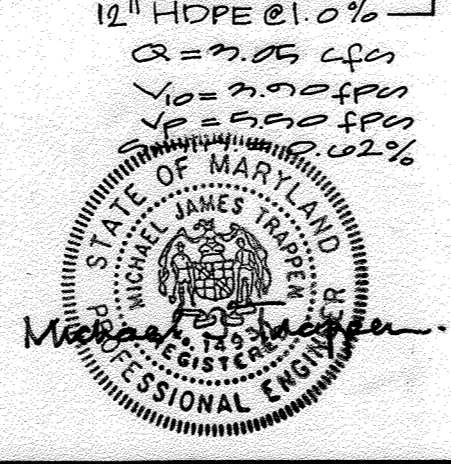 12" HDPE @ 1.0%
Q = 3.05 cfs
V10 = 3.90 fps
Vp = 5.50 fps
0.62%
STATE OF MARYLAND
MICHAEL JAMES TRAPPEN
REGISTERED
PROFESSIONAL ENGINEER
Michael J. Trappen